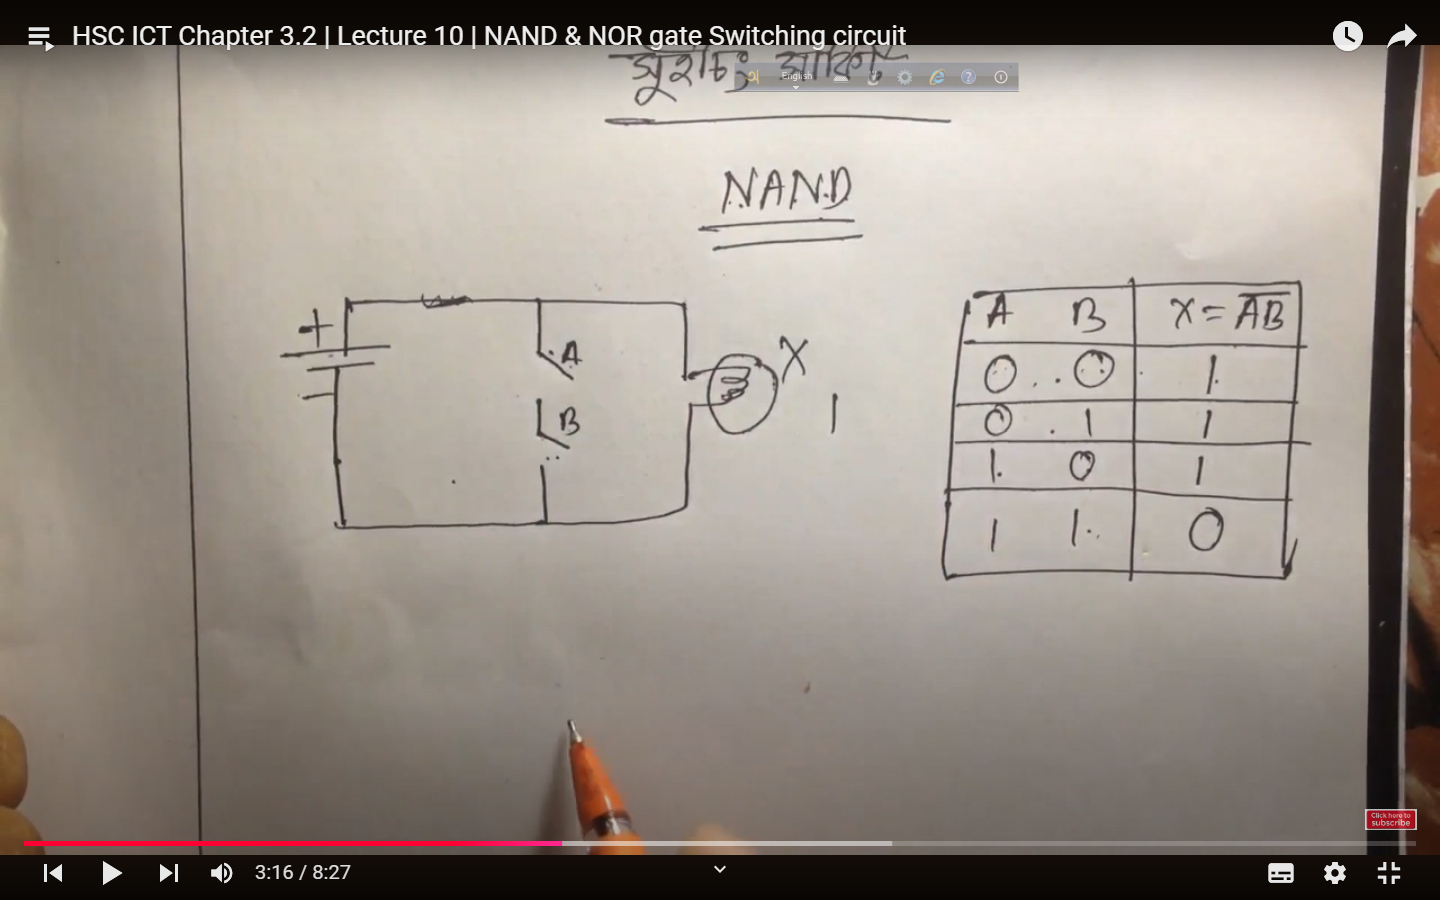 HSC ICT Chapter 3.2 | Lecture 10 | NAND & NOR gate Switching circuit
English
NAND
+
-
A
B
X
1
A B X = A̅B̅
0 0 1
0 1 1
1 0 1
1 1 0
Click here to
subscribe
3:16 / 8:27